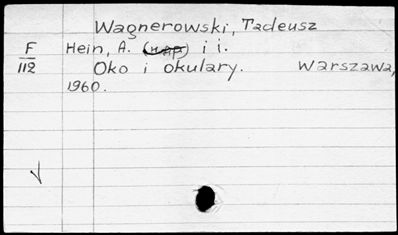 Wagnerowski, Tadeusz
F Hein, A. i i.
112 Oko i okulary. Warszawa,
1960.